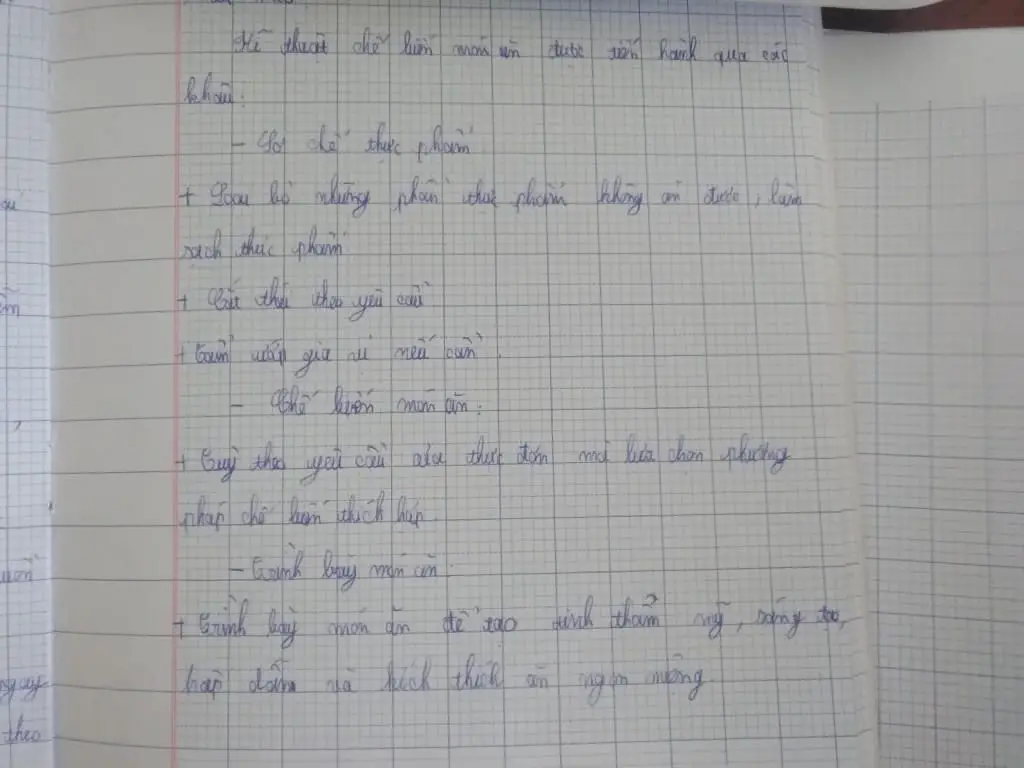 Kĩ thuật chế biến món ăn được tiến hành qua các
khâu:
- Sơ chế thực phẩm
+ Loại bỏ những phần thực phẩm không ăn được, làm
sạch thực phẩm
+ Cắt thái theo yêu cầu
+ Tẩm ướp gia vị nếu cần.
- Chế biến món ăn:
+ Tuỳ theo yêu cầu của thực đơn mà lựa chọn phương
pháp chế biến thích hợp
- Trình bày món ăn:
+ Trình bày món ăn để tạo tính thẩm mỹ, sáng tạo,
hấp dẫn và kích thích ăn ngon miệng
ngay
theo